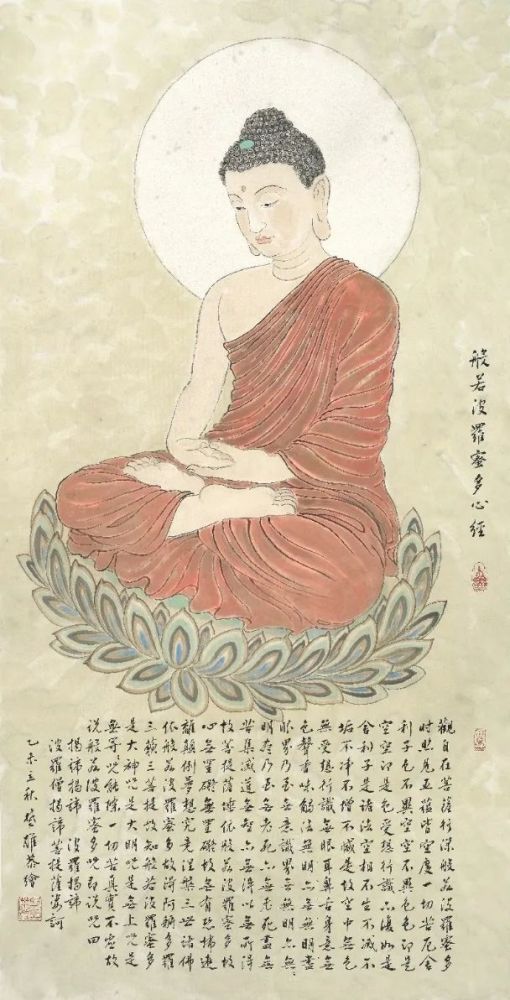 般若波羅蜜多心經
觀自在菩薩行深般若波羅蜜多
時照見五蘊皆空度一切苦厄舍
利子色不異空空不異色色即是
空空即是色受想行識亦復如是
舍利子是諸法空相不生不滅不
垢不淨不增不減是故空中無色
無受想行識無眼耳鼻舌身意無
色聲香味觸法無
眼界乃至無意識界無無明亦無無
明盡乃至無老死亦無老死盡無
苦集滅道無智亦無得以無所得
故菩提薩埵依般若波羅蜜多故
心無罣礙無罣礙故無有恐怖遠
離顛倒夢想究竟涅槃三世諸佛
依般若波羅蜜多故得阿耨多羅
三藐三菩提故知般若波羅蜜多
是大神咒是大明咒是無上咒是
無等等咒能除一切苦真實不虛故
說般若波羅蜜多咒即說咒曰
揭諦揭諦 波羅揭諦
波羅僧揭諦菩提薩婆訶
乙未立秋 雄恭繪